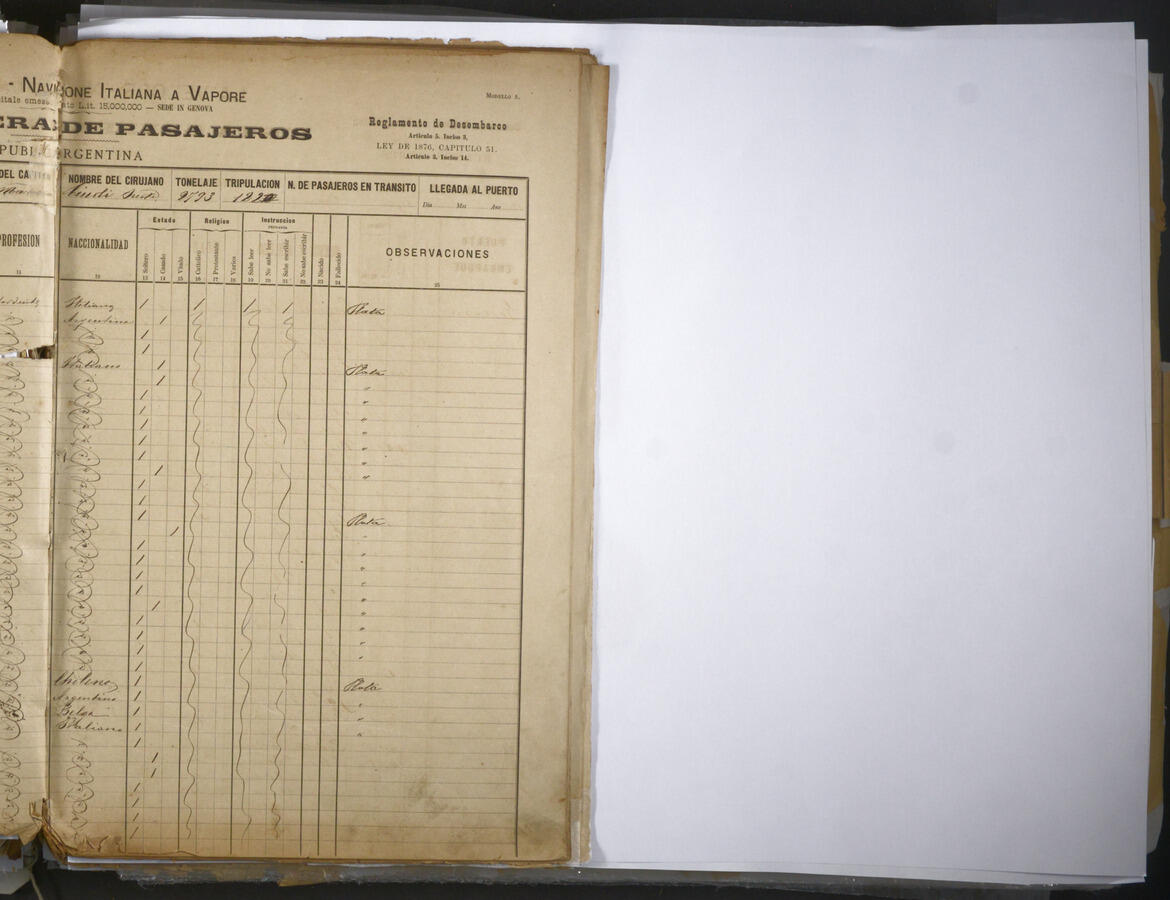 - NAVI ONE ITALIANA A VAPORE
MODELLO 8.
itale emess ato L.it. 15,000,000 — SEDE IN GENOVA
ERA DE PASAJEROS
Reglamento de Desembarco
Artículo 5. Inciso 3,
PUBL ARGENTINA
LEY DE 1876, CAPITULO 51.
Artículo 3, Inciso 14.
DEL CA
NOMBRE DEL CIRUJANO TONELAJE TRIPULACION N. DE PASAJEROS EN TRANSITO LLEGADA AL PUERTO
Dia Mes Ano
Estado Religion Instruccion
PROFESION NACCIONALIDAD Soltero Casado Viudo Cattolico Protestante Varios Sabe leer No sabe leer Sabe escribir No sabe escribir Nacido Fallecido OBSERVACIONES
11 12 13 14 15 16 17 18 19 20 21 22 23 24 25
Italiano / / / / Plata
Argentino /
/
/
Italiano / Plata
/ "
/ "
/
/ "
/ "
/ "
/ "
/
/
/ Plata
/ "
/ "
/ "
/ "
/
/ "
/ "
/ "
/ "
/
Chileno / Plata
Argentino / "
Belga / "
Italiano / "
/
/
/
/
/
/
/